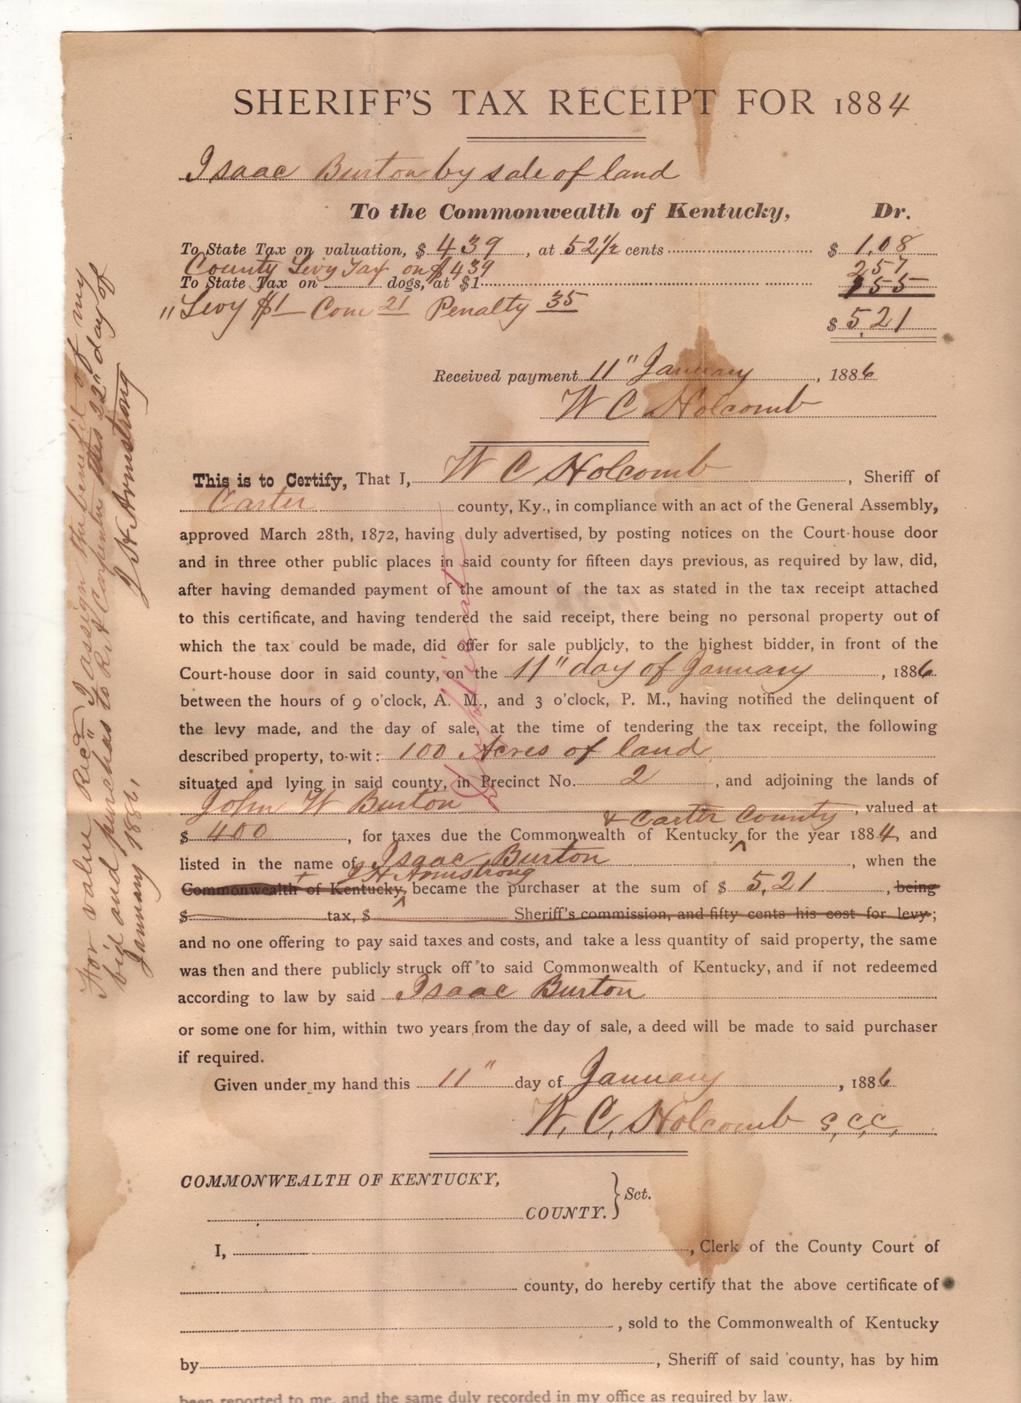 SHERIFF'S TAX RECEIPT FOR 1884
Isaac Burton by sale of land
To the Commonwealth of Kentucky, Dr.
To State Tax on valuation, $ 439, at 52 1/2 cents $ 1.08
County Levy Tax on $439 257
To State Tax on dogs, at $1 155
" Levy $1 Com 21 Penalty 35
$ 5,21
Received payment 11" January, 1886
W C Holcomb
This is to Certify, That I, W C Holcomb, Sheriff of
Carter county, Ky., in compliance with an act of the General Assembly,
approved March 28th, 1872, having duly advertised, by posting notices on the Court-house door
and in three other public places in said county for fifteen days previous, as required by law, did,
after having demanded payment of the amount of the tax as stated in the tax receipt attached
to this certificate, and having tendered the said receipt, there being no personal property out of
which the tax could be made, did offer for sale publicly, to the highest bidder, in front of the
Court-house door in said county, on the 11" day of January, 1886
between the hours of 9 o'clock, A. M., and 3 o'clock, P. M., having notified the delinquent of
the levy made, and the day of sale, at the time of tendering the tax receipt, the following
described property, to-wit: 100 Acres of land
situated and lying in said county, in Precinct No. 2, and adjoining the lands of
John W Burton, valued at
& Carter County
$ 400, for taxes due the Commonwealth of Kentucky ^ for the year 1884, and
listed in the name of Isaac Burton, when the
J H Armstrong
Commonwealth of Kentucky, ^ became the purchaser at the sum of $ 5,21, being
$ tax, $ Sheriff's commission, and fifty cents his cost for levy;
and no one offering to pay said taxes and costs, and take a less quantity of said property, the same
was then and there publicly struck off to said Commonwealth of Kentucky, and if not redeemed
according to law by said Isaac Burton
or some one for him, within two years from the day of sale, a deed will be made to said purchaser
if required.
Given under my hand this 11" day of January, 1886
W. C. Holcomb S,C,C,
COMMONWEALTH OF KENTUCKY,
COUNTY. } Sct.
I, , Clerk of the County Court of
county, do hereby certify that the above certificate of
, sold to the Commonwealth of Kentucky
by , Sheriff of said county, has by him
been reported to me, and the same duly recorded in my office as required by law.
For value Rec'd I assign the benefit of my
bid and purchas to Carpenter this 22" day of
January 1886,
J H Armstrong